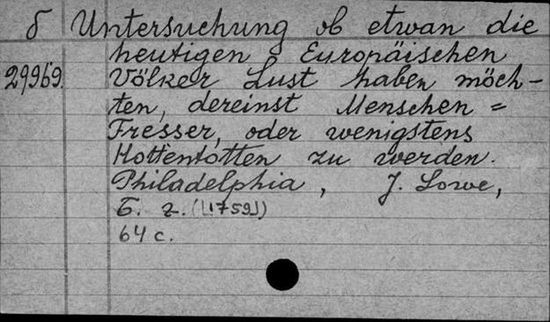 б Untersuchung ob etwan die
heutigen Europäischen
29969. Völker Lust haben möch-
ten, dereinst Menschen=
Fresser, oder wenigstens
Hottentotten zu werden.
Philadelphia, J. Lowe,
Б. г. ([1759])
64 c.